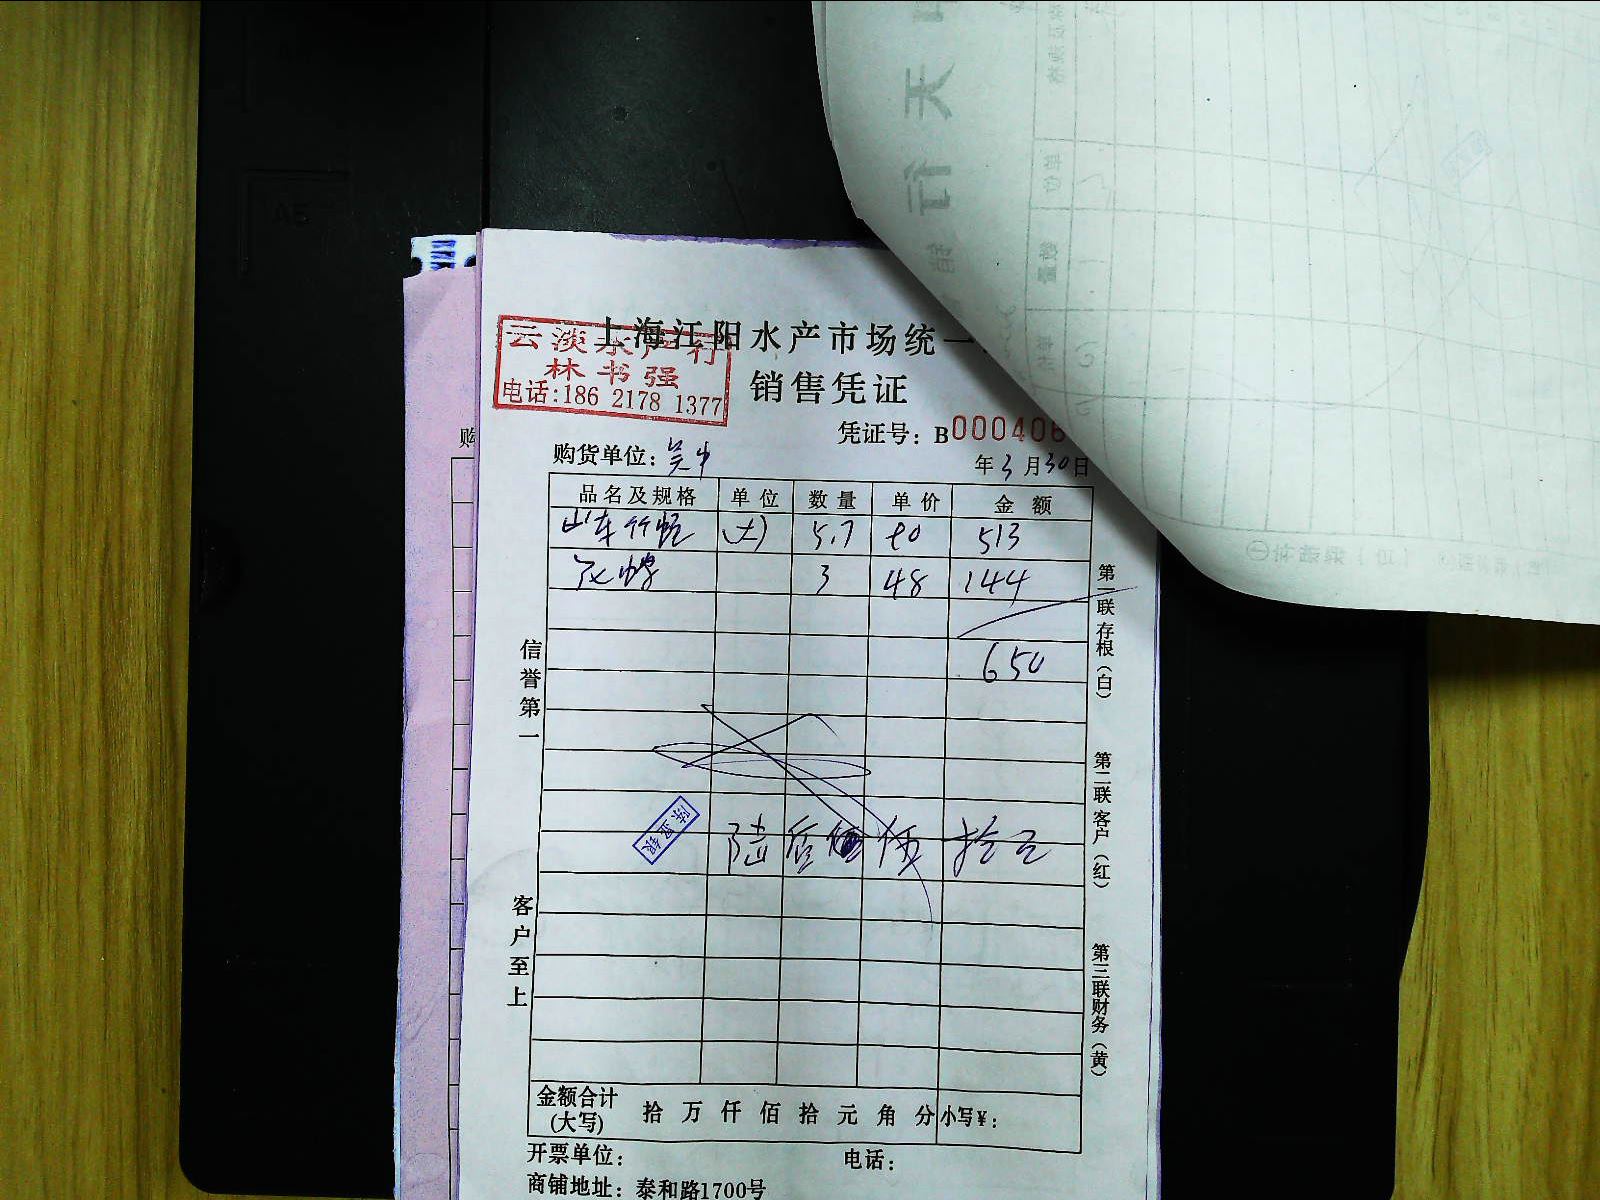 上海江阳水产市场统一
销售凭证
云淡水产行
林书强
电话:186 2178 1377
凭证号: B000406
购货单位:
年3月30日
品名及规格 单位 数量 单价 金额
山东竹蛏 (大) 5.7 90 513
花蛤 3 48 144
650
陆佰 伍拾元
信誉第一
客户至上
第一联存根(白)
第二联客户(红)
第三联财务(黄)
金额合计(大写) 拾 万 仟 佰 拾 元 角 分 小写¥:
开票单位: 电话:
商铺地址: 泰和路1700号
购